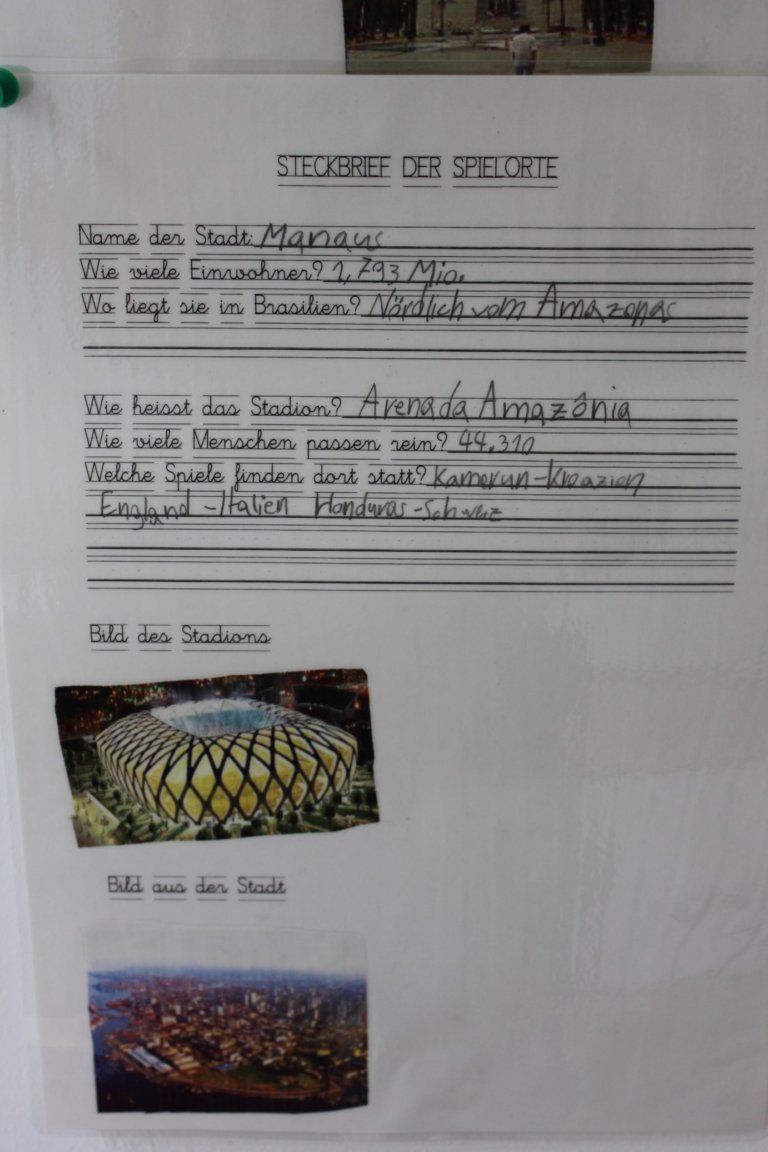 STECKBRIEF DER SPIELORTE
Name der Stadt: Manaus
Wie viele Einwohner? 1,793 Mio.
Wo liegt sie in Brasilien? Nördlich vom Amazonas
Wie heisst das Stadion? Arenada Amazônia
Wie viele Menschen passen rein? 44.310
Welche Spiele finden dort statt? Kamerun-Kroazien
England-Italien Honduras-Schweiz
Bild des Stadions
Bild aus der Stadt